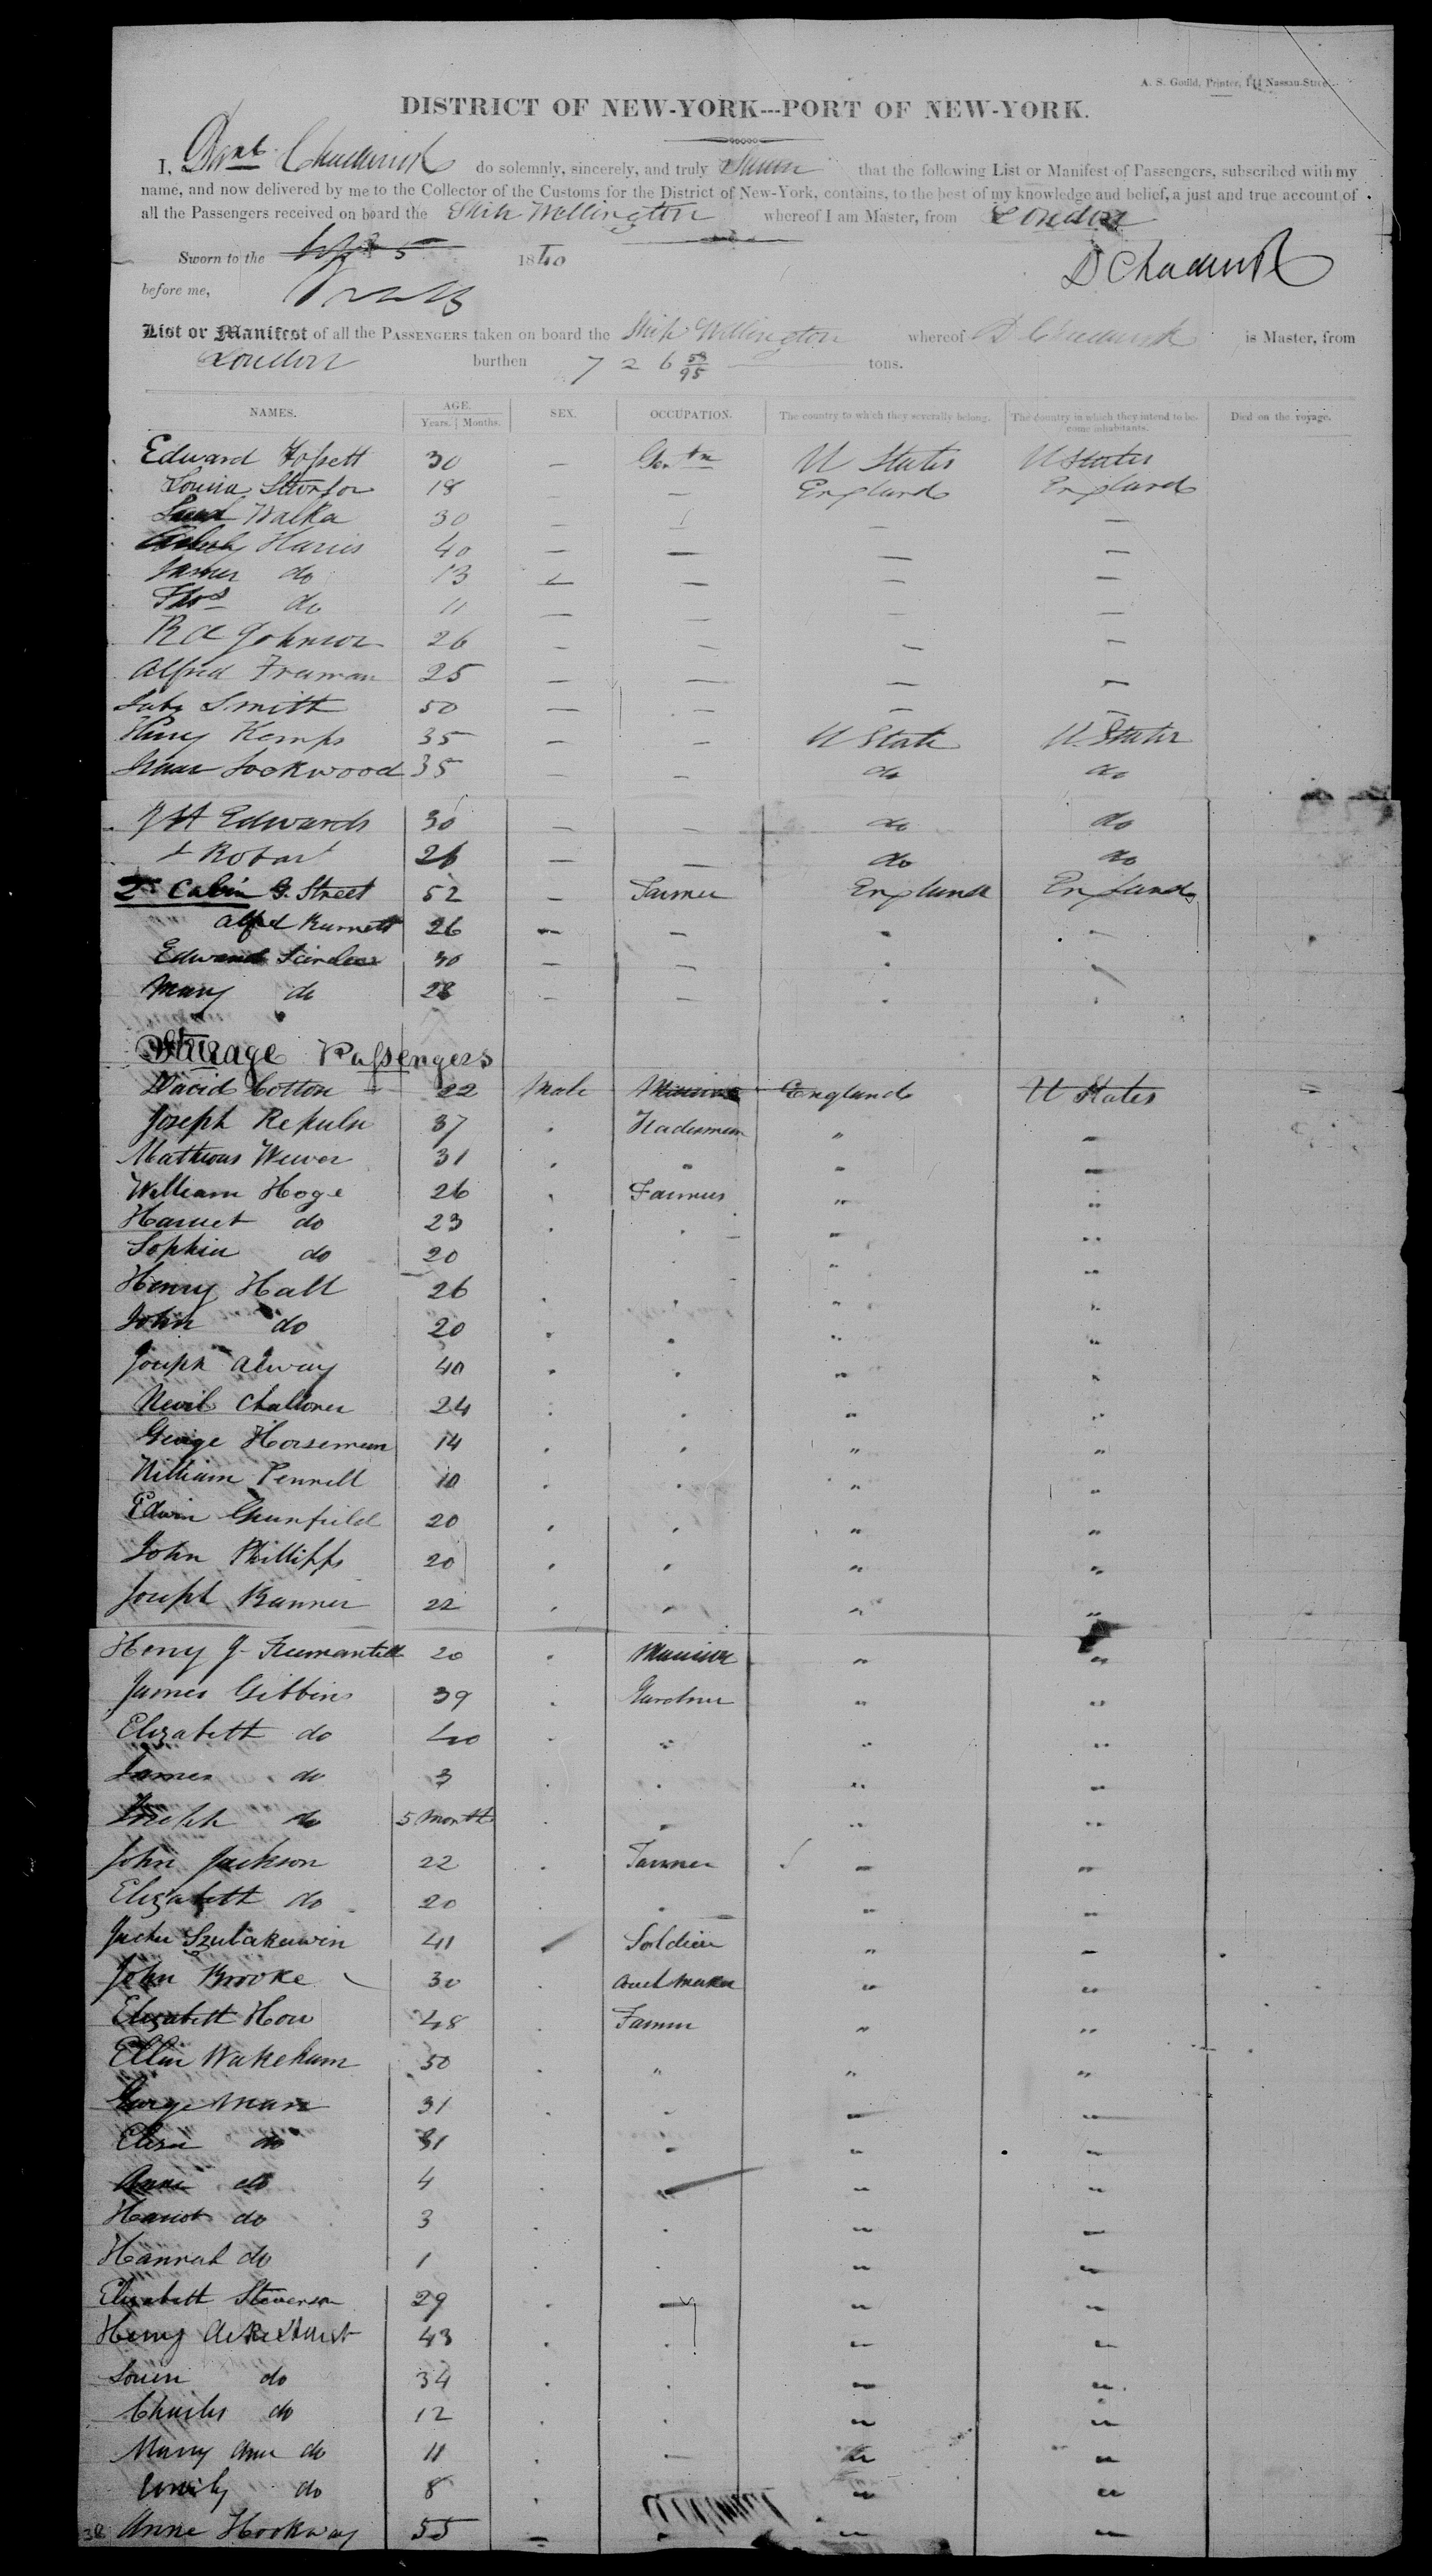 A. S. Gould, Printer, 144 Nassau-Street.
DISTRICT OF NEW-YORK---PORT OF NEW-YORK.
I, Danl Chadwick do solemnly, sincerely, and truly Swear that the following List or Manifest of Passengers, subscribed with my
name, and now delivered by me to the Collector of the Customs for the District of New-York, contains, to the best of my knowledge and belief, a just and true account of
all the Passengers received on board the Ship Wellington whereof I am Master, from London
Sworn to the 5 1840 D Chadwick
before me,
List or Manifest of all the PASSENGERS taken on board the Ship Wellington whereof D Chadwick is Master, from
London burthen 726 58/95 tons.
NAMES. AGE. SEX. OCCUPATION. The country to which they severally belong. The country in which they intend to be-
Years. | Months. come inhabitants. Died on the voyage.
Edward Fossett 30 — Gentn U States U States
Louisa 18 — — England England
Walka 30 — — —
Harris 40 — — — —
James do 13 — — — —
Thos do 11 — — — —
R A Johnson 26 — — — —
Alfred Freeman 25 — — — —
Smith 50 — — — —
Henry Kemps 35 — — U State U States
Isaac Lockwood 35 — — do do
J H Edwards 30 — — do do
Robart 26 — — do do
2d Cabin G. Street 52 — Farmer England England
Alfred Burnett 26 — — " —
Edward 30 — — "
Mary do 28 — — " "
Steerage Passengers
David Cotton 22 Male England U States
Joseph Repulse 37 " Tradesman " "
Mathews Wever 31 " " " "
William Hoge 26 " Farmer " "
Harriet do 23 " " " "
Sophia do 20 " "
Henry Hall 26 " " " "
John do 20 " " " "
Joseph Alway 40 " " " "
Nevil Challoner 24 " " " "
George Horseman 14 " " " "
William Pennell 10 " " " "
Edwin Greenfield 20 " " " "
John Phillipps 20 " " " "
Joseph Banner 22 " " " "
Henry J. Freemantell 20 " " "
James Gibbins 39 " Gardner " "
Elizabeth do 40 " " " "
James do 3 " " " "
Joseph do 5 Months " " " "
John Jackson 22 " Farmer " "
Elizabeth do 20 " " " "
Szulakewin 41 Soldier " "
John Brooke 30 " " "
Elizabeth How 48 " Farmer " "
Ellen Wakeham 50 " " " "
George Mare 31 " " " "
Eliza do 31 " " " "
Anne do 4 " " " "
Harriot do 3 " " " "
Hannah do 1 " " " "
Elizabeth Stevenson 29 " — " "
Henry Akehurst 43 " " " "
Louisa do 34 " " " "
Charles do 12 " " " "
Mary Ann do 11 " — " "
Emily do 8 " " "
Anne Hookway 55 " " " "